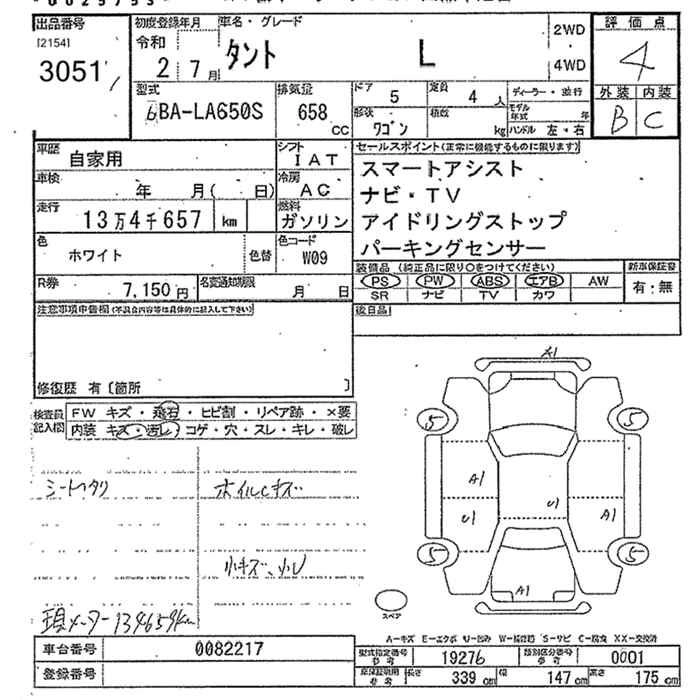 出品番号 初度登録年月 車名・グレード 2WD 評価点
[2154] 令和
3051 2 7月 タント L 4WD 4
型式 排気量 ドア 5 定員 4人 ディーラー・並行 外装 内装
6BA-LA650S 658 CC 形状 ワゴン 積数 kg モデル年式 年 B C
ハンドル 左・右
車歴 自家用 シフト IAT セールスポイント(正常に機能するものに限ります)
車検 年 月( 日) 冷房 AC スマートアシスト
ナビ・TV
走行 13万4千657 km 燃料 ガソリン アイドリングストップ
色 ホワイト 色替 色コード W09 パーキングセンサー
装備品 (純正品に限り○をつけてください) 新車保証書
R券 7,150円 名変通知期限 月 日 PS PW ABS エアB AW 有・無
SR ナビ TV カワ
注意事項申告欄(不具合内容等は具体的に記入して下さい) 後日品
修復歴 有〔箇所 〕
検査員記入欄 FW キズ・飛石・ヒビ割・リペア跡・×要
内装 キズ・汚レ・コゲ・穴・スレ・キレ・破レ
シートヘタリ ホイルキズ
小キズ、小凹
現メーター134659km
A1
5 5
A1 U1
U1 A1
5 5
A1
スペア
A-キズ E-エクボ U-凹み W-補修跡 S-サビ C-腐食 XX-交換済
車台番号 0082217 型式指定番号 参考 19276 類別区分番号 参考 0001
登録番号 車庫証明用 参考 長さ 339 cm 幅 147 cm 高さ 175 cm